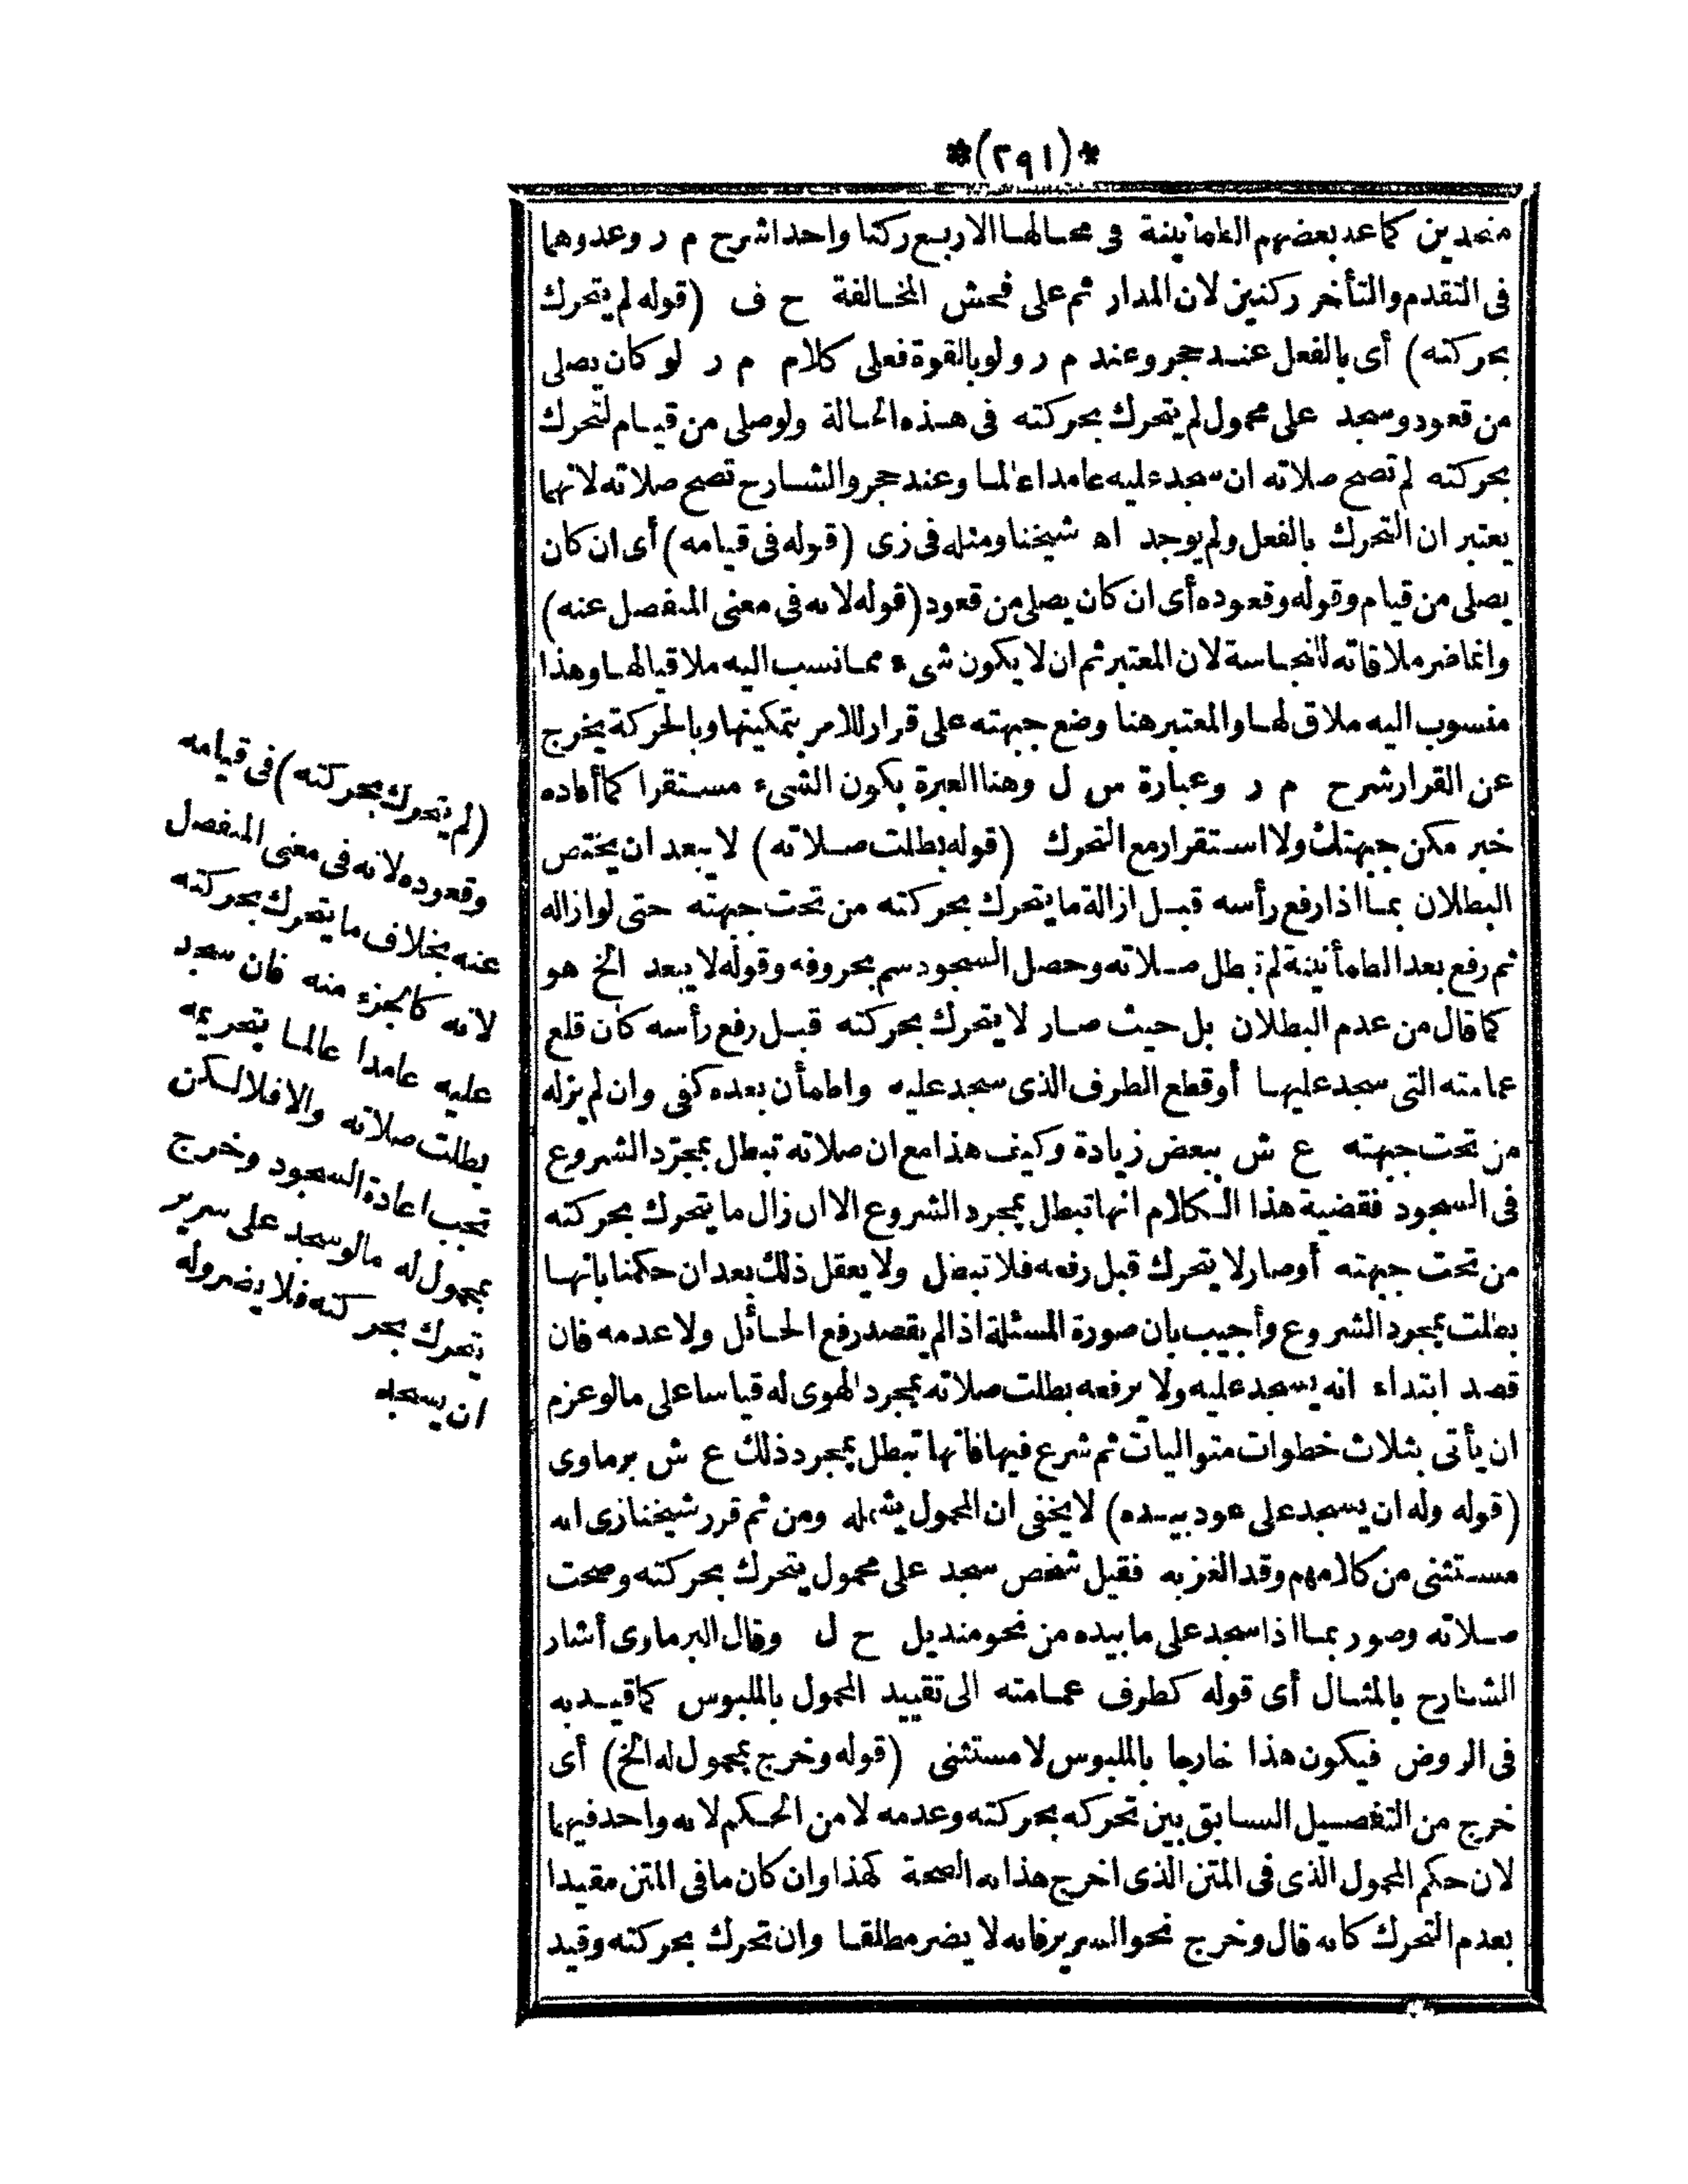 *(٢٩١)*
متحدين كما عد بعضهم الطمأنينة في محالها الاربع ركنا واحدا شرح م ر وعدوهما
فى التقدم والتأخر ركنين لان المدار ثم على فحش المخالفة ح ف (قوله لم يتحرك
بحركته) أى بالفعل عند حجر وعند م ر ولو بالقوة فعلى كلام م ر لو كان يصلى
من قعود وسجد على محمول لم يتحرك بحركته فى هذه الحالة ولو صلى من قيام لتحرك
بحركته لم تصح صلاته ان سجد عليه عامدا عالما وعند حجر والشارح تصح صلاته لانهما
يعتبر ان التحرك بالفعل ولم يوجد اه شيخنا ومثله فى زى (قوله فى قيامه) أى ان كان
يصلى من قيام وقوله وقعوده أى ان كان يصلى من قعود (قوله لانه فى معنى المنفصل عنه)
وانما ضر ملاقاته للنجاسة لان المعتبر ثم ان لا يكون شىء مما نسب اليه ملاقيا لها وهذا
منسوب اليه ملاق لها والمعتبر هنا وضع جبهته على قرار للامر بتمكينها وبالحركة يخرج
عن القرار شرح م ر وعبارة س ل وهنا العبرة بكون الشىء مستقرا كما أفاده
خبر مكن جبهتك ولا استقرار مع التحرك (قوله بطلت صلاته) لا يبعد ان يختص
البطلان بما اذا رفع رأسه قبل ازالة ما يتحرك بحركته من تحت جبهته حتى لو ازاله
ثم رفع بعد الطمأنينة لم تبطل صلاته وحصل السجود سم بحروفه وقوله لا يبعد الخ هو
كما قال من عدم البطلان بل حيث صار لا يتحرك بحركته قبل رفع رأسه كان قلع
عمامته التى سجد عليها أو قطع الطرف الذى سجد عليه واطمأن بعده كفى وان لم يزله
من تحت جبهته ع ش ببعض زيادة وكيف هذا مع ان صلاته تبطل بمجرّد الشروع
فى السجود فقضية هذا الكلام انها تبطل بمجرد الشروع الا ان زال ما يتحرك بحركته
من تحت جبهته أو صار لا يتحرك قبل رفعه فلا تبطل ولا يعقل ذلك بعد ان حكمنا بانها
بطلت بمجرد الشروع وأجيب بان صورة المسئلة اذا لم يقصد رفع الحائل ولا عدمه فان
قصد ابتداء انه يسجد عليه ولا يرفعه بطلت صلاته بمجرد الهوى له قياسا على ما لو عزم
ان يأتى بثلاث خطوات متواليات ثم شرع فيها فانها تبطل بمجرد ذلك ع ش برماوى
(قوله وله ان يسجد على عود بيده) لا يخفى ان المحمول يشمله ومن ثم قرر شيخنا زى انه
مستثنى من كلامهم وقد الغز به فقيل شخص سجد على محمول يتحرك بحركته وصحت
صلاته وصور بما اذا سجد على ما بيده من نحو منديل ح ل وقال البرماوى أشار
الشارح بالمثال أى قوله كطرف عمامته الى تقييد المحمول بالملبوس كما قيد به
فى الروض فيكون هذا خارجا بالملبوس لا مستثنى (قوله وخرج بمحمول له الخ) أى
خرج من التفصيل السابق بين تحركه بحركته وعدمه لا من الحكم لانه واحد فيهما
لان حكم المحمول الذى فى المتن الذى اخرج هذا منه الصحة كهذا وان كان ما فى المتن مقيدا
بعدم التحرك كانه قال وخرج نحو السرير فانه لا يضر مطلقا وان تحرك بحركته وقيد
(لم يتحرك بحركته) فى قيامه
وقعوده لانه فى معنى المنفصل
عنه بخلاف ما يتحرك بحركته
لانه كالجزء منه فان سجد
عليه عامدا عالما بتحريمه
بطلت صلاته والا فلا لكن
تجب اعادة السجود وخرج
بمحمول له ما لو سجد على سرير
يتحرك بحركته فلا يضر وله
ان يسجد